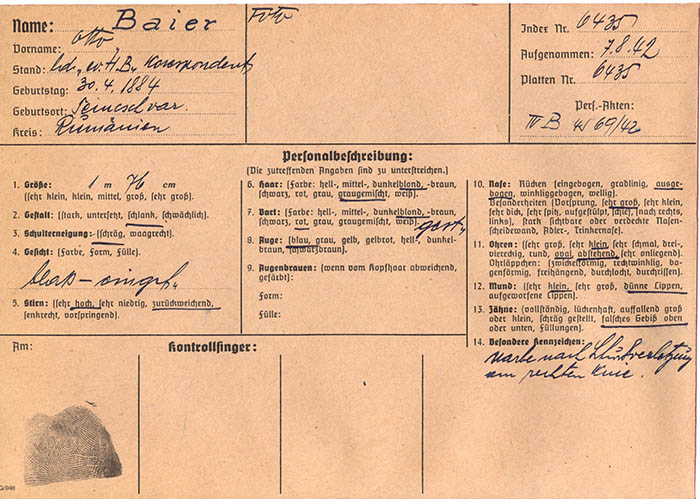 Name: Baier
Vorname: Otto,
Stand: led., w.H.B. Korespondent
Geburtstag: 30.4.1884
Geburtsort: Temeschvar.
Kreis: Rumänien
Foto
Index Nr. 6435
Aufgenommen: 7.8.42
Platten Nr. 6435
Pers.-Akten:
IV B 69/42
Personalbeschreibung:
(Die zutreffenden Angaben sind zu unterstreichen.)
1. Größe: 1 m 76 cm
(sehr klein, klein, mittel, groß, sehr groß).
2. Gestalt: (stark, untersetzt, schlank, schwächlich).
3. Schulterneigung: (schräg, waagrecht).
4. Gesicht: (Farbe, Form, Fülle).
blaß - eingef.
5. Stirn: (sehr hoch, sehr niedrig, zurückweichend,
senkrecht, vorspringend).
6. Haar: (Farbe: hell-, mittel-, dunkelblond, -braun,
schwarz, rot, grau, graugemischt, weiß).
7. Bart: (Farbe: hell-, mittel-, dunkelblond, -braun,
schwarz, rot, grau, graugemischt, weiß).
gest.
8. Auge: (blau, grau, gelb, gelbrot, hell-, dunkel-
braun, schwarzbraun).
9. Augenbrauen: (wenn vom Kopfhaar abweichend,
gefärbt):
Form:
Fülle:
10. Nase: Rücken (eingebogen, gradlinig, ausge-
bogen, winkliggebogen, wellig).
Besonderheiten (Vorsprung, sehr groß, sehr klein,
sehr dick, sehr spitz, aufgestülpt, schief, nach rechts,
links), stark sichtbare oder verdeckte Nasen-
scheidewand, Adler-, Trinkernase).
11. Ohren: (sehr groß, sehr klein, sehr schmal, drei-
viereckig, rund, oval, abstehend, sehr anliegend).
Ohrläppchen: (zwickelförmig, rechtwinklig, bo-
genförmig, freihängend, durchlocht, durchrissen).
12. Mund: (sehr klein, sehr groß, dünne Lippen,
aufgeworfene Lippen).
13. Zähne: (vollständig, lückenhaft, auffallend groß
oder klein, schräg gestellt, falsches Gebiß oben
oder unten, Füllungen).
14. Besondere Kennzeichen:
Narbe nach Schußverletzung
am rechten Knie.
Am:
Kontrollfinger: